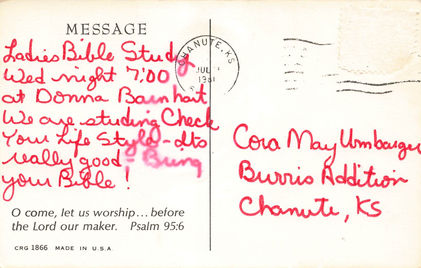 MESSAGE
Ladies Bible Study
Wed night 7:00
at Donna Barnhart
We are studing Check
Your Life Style - Its
really good - Bring
your Bible!
O come, let us worship... before
the Lord our maker. Psalm 95:6
CRG 1866 MADE IN U.S.A.
CHANUTE, KS
JUL
1981
Cora May Umbarger
Burris Addition
Chanute, KS